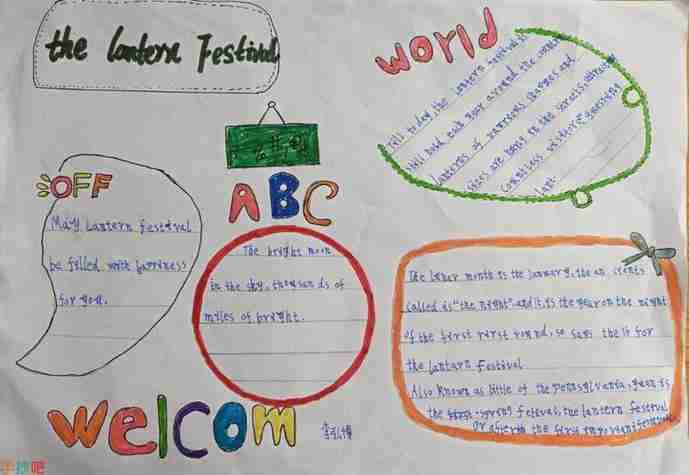 the Lantern Festival
world
till today, the lantern festival is
still held each year around the
lanterns of various shapes and
sizes are hung in the streets, attracting
countless visitors. guessing
lant-
OFF
May Lantern festival
be filled with happiness
for you.
ABC
The bright moon
in the sky, thousands of
miles of bright.
The lunar month is the January, the an cients
called it is "the night" and it is the year on the night
of the first first round, so says the 15 for
the lantarn Festival
Also Known as little of the Pennsylvania, yuan is
the spring festival, the lantern festival
or after the first important
welcom